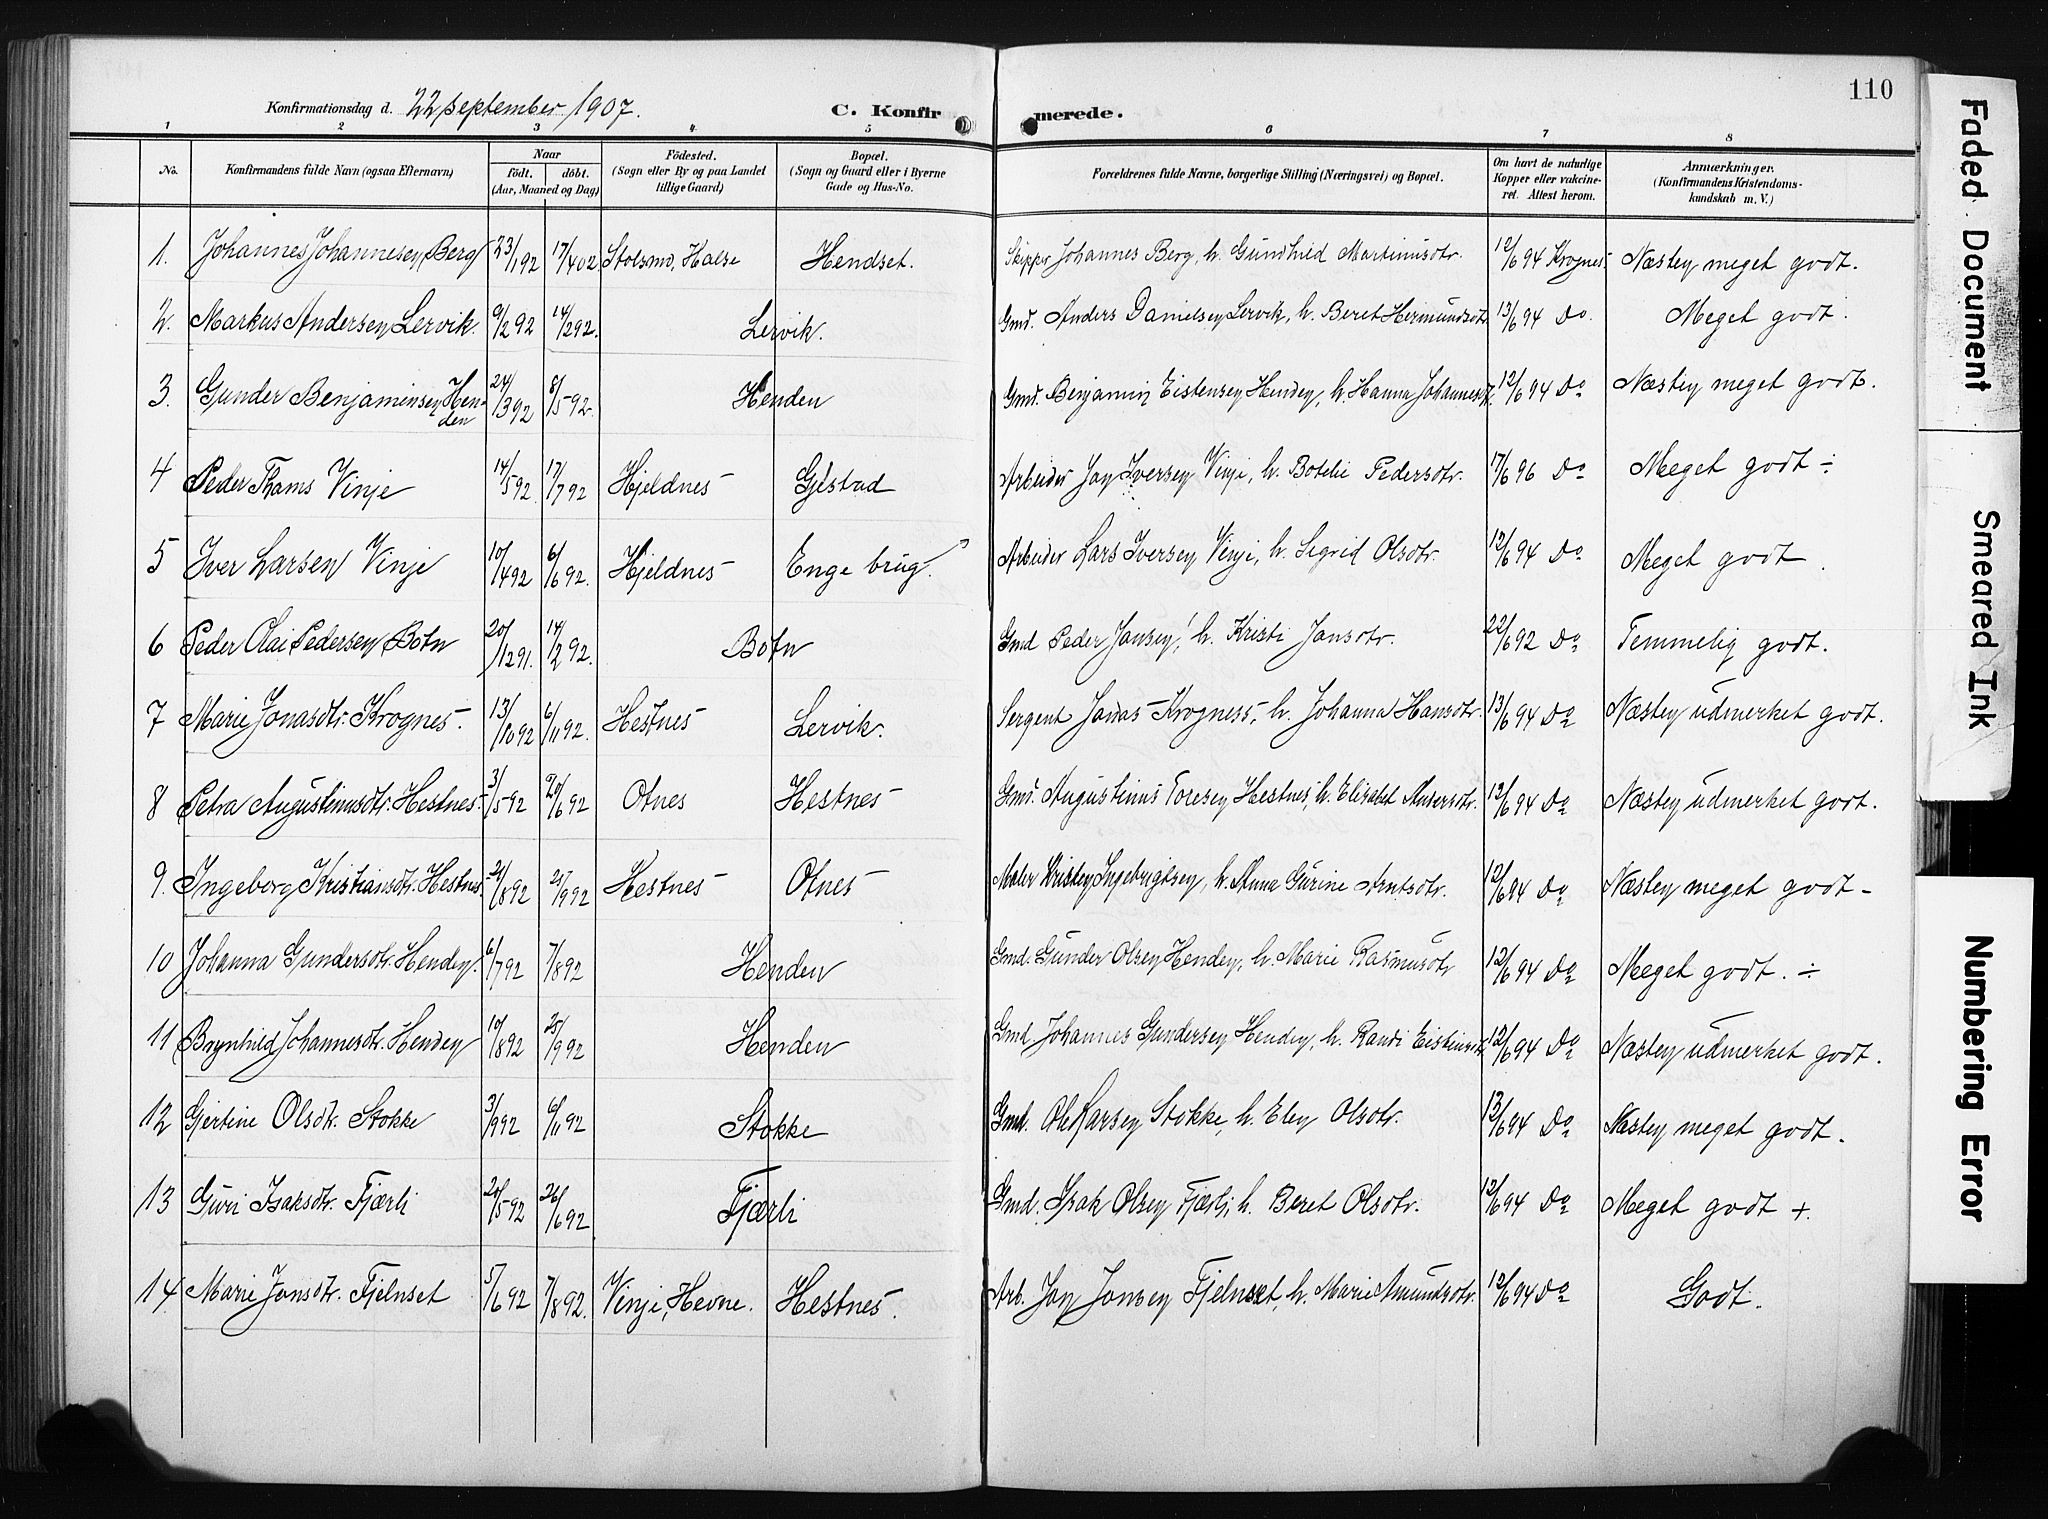 110
Konfirmationsdag d. 22 september 1907. C. Konfirmerede.
1 2 3 4 5 6 7 8
No. Konfirmandens fulde Navn (ogsaa Efternavn) Naar født. døbt. (Aar, Maaned og Dag) Födested. (Sogn eller By og paa Landet tillige Gaard) Bopæl. (Sogn og Gaard eller i Byerne Gade og Hus-No. Forældrenes fulde Navne, borgerlige Stilling (Næringsvei) og Bopæl. Om havt de naturlige Kopper eller vakcineret. Attest herom. Anmærkninger. (Konfirmandens Kristendomskundskab m. V.)
1. Johannes Johannesen Berg 23/1 92 17/4 02 Stolsmo, Halse Hendset. Skipper Johannes Berg, h. Gundhild Martinusdtr. 12/6 94 Krognes. Næsten meget godt.
2. Markus Andersen Lervik. 9/2 92 14/2 92. Lervik. Gmd. Anders Danielsen Lervik, h. Beret Hermundsdtr. 13/6 94 Do. Meget godt.
3. Gunder Benjaminsen Henden 24/3 92 8/5 92. Henden Gmd. Benjamin Eistensen Henden, h. Hanna Johannesdt. 12/6 94 Do Næsten meget godt.
4 Peder Thams Vinje 14/5 92. 17/7 92 Hjeldnes Gjestad Arbeider Jon Iversen Vinje, h. Botelie Pedersdtr. 17/6 96 Do Meget godt ÷
5 Iver Larsen Vinje 10/4 92 6/6 92. Hjeldnes Enge brug. Arbeider Lars Iversen Vinje, h. Sigrid Olsdtr. 12/6 94 Do Meget godt.
6 Peder Olai Pedersen Botn 20/12 91. 14/2 92. Botn Gmd Peder Jansen, h. Kristi Jonsdtr. 22/6 92 Do Temmelig godt.
7 Marie Jonasdtr. Krognes. 13/10 92 6/11 92. Hestnes Lervik. Sergent Jonas Krogness, h. Johanna Hansdtr. 13/6 94 Do Næsten udmerket godt.
8 Petra Augustinusdtr. Hestnes. 3/5 92 20/6 92 Otnes Hestnes Gmd. Augustinus Toresen Hestnes, h. Elisabet Andersdtr. 12/6 94 Do Næsten udmerket godt.
9. Ingeborg Kristiansdtr. Hestnes. 21/8 92 25/9 92 Hestnes Otnes Maler Kristen Ingebrigtsen, h. Anna Gurine Arntsdtr. 12/6 94 Do Næsten meget godt -
10 Johanna Gundersdtr. Henden. 6/7 92 7/8 92 Henden Gmd. Gunder Olsen Henden, h. Marie Rasmusdtr 12/6 94 Do Meget godt. ÷
11 Brynhild Johannesdtr. Henden 10/8 92 25/9 92 Henden Gmd. Johannes Gundersen Henden, h. Randi Eistensdtr 12/6 94 Do Næsten udmerket godt.
12 Gjertine Olsdtr. Stokke 3/9 92 6/11 92 Stokke Gmd. Ole Larsen Stokke, h. Elen Olsdtr. 13/6 94 Do Næsten meget godt.
13 Guri Isaksdtr. Fjærli 20/5 92 26/6 92 Fjærli Gmd. Isak Olsen Fjærli, h. Beret Olsdtr. 12/6 94 Do Meget godt +.
14 Marie Jonsdtr. Fjelnset 5/6 92 7/8 92. Vinje, Hevne. Hestnes. Arb. Jon Jonsen Fjelnset, h. Marie Amundsdtr. 12/6 94 Do Godt.
Faded Document
Smeared Ink
Numbering Error